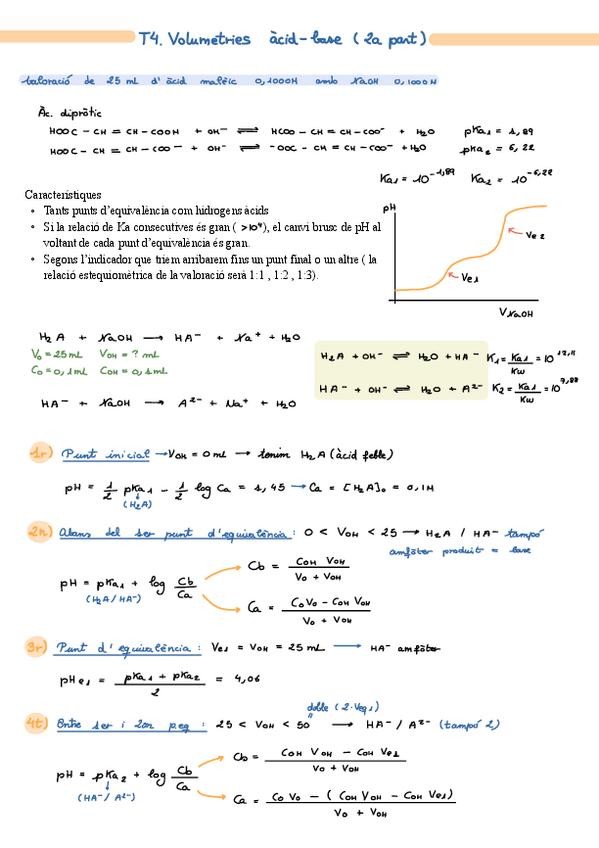 T4. Volumetries àcid-base (2a part)
Valoració de 25 mL d'àcid malèic 0,1000M amb NaOH 0,1000M
Àc. dipròtic
HOOC - CH = CH - COOH + OH⁻ ⇌ HCOO - CH = CH - COO⁻ + H₂O pKa₁ = 1,89
HOOC - CH = CH - COO⁻ + OH⁻ ⇌ ⁻OOC - CH = CH - COO⁻ + H₂O pKa₂ = 6,22
Ka₁ = 10^-1,89 Ka₂ = 10^-6,22
Característiques
• Tants punts d'equivalència com hidrogens àcids
• Si la relació de Ka consecutives és gran ( >10⁴), el canvi brusc de pH al
voltant de cada punt d'equivalència és gran.
• Segons l'indicador que triem arribarem fins un punt final o un altre ( la
relació estequiomètrica de la valoració serà 1:1 , 1:2 , 1:3).
pH
Ve₂
Ve₁
VNaOH
H₂A + NaOH ⟶ HA⁻ + Na⁺ + H₂O
V₀ = 25 mL VOH = ? mL
C₀ = 0,1 mL COH = 0,1 mL
HA⁻ + NaOH ⟶ A²⁻ + Na⁺ + H₂O
H₂A + OH⁻ ⇌ H₂O + HA⁻ K₁ = Ka₁/Kw = 10^12,11
HA⁻ + OH⁻ ⇌ H₂O + A²⁻ K₂ = Ka₁/Kw = 10^7,88
1r) Punt inicial → VOH = 0 mL → tenim H₂A (àcid feble)
pH = 1/2 pKa₁ - 1/2 log Ca = 1,45 → Ca = [H₂A]₀ = 0,1M
(H₂A)
2n) Abans del 1er punt d'equivalència: 0 < VOH < 25 → H₂A / HA⁻ tampó
amfòter produit = base
pH = pKa₁ + log Cb/Ca
(H₂A/HA⁻)
Cb = COH VOH / V₀ + VOH
Ca = C₀V₀ - COH VOH / V₀ + VOH
3r) Punt d'equivalència: Ve₁ = VOH = 25 mL ⟶ HA⁻ amfòter
pHe₁ = pKa₁ + pKa₂ / 2 = 4,06
doble (2·Veq₁)
4t) Entre 1er i 2on peq: 25 < VOH < 50 ⟶ HA⁻ / A²⁻ (tampó 2)
pH = pKa₂ + log Cb/Ca
(HA⁻/A²⁻)
Cb = COH VOH - COH Ve₁ / V₀ + VOH
Ca = C₀ V₀ - (COH VOH - COH Ve₁) / V₀ + VOH